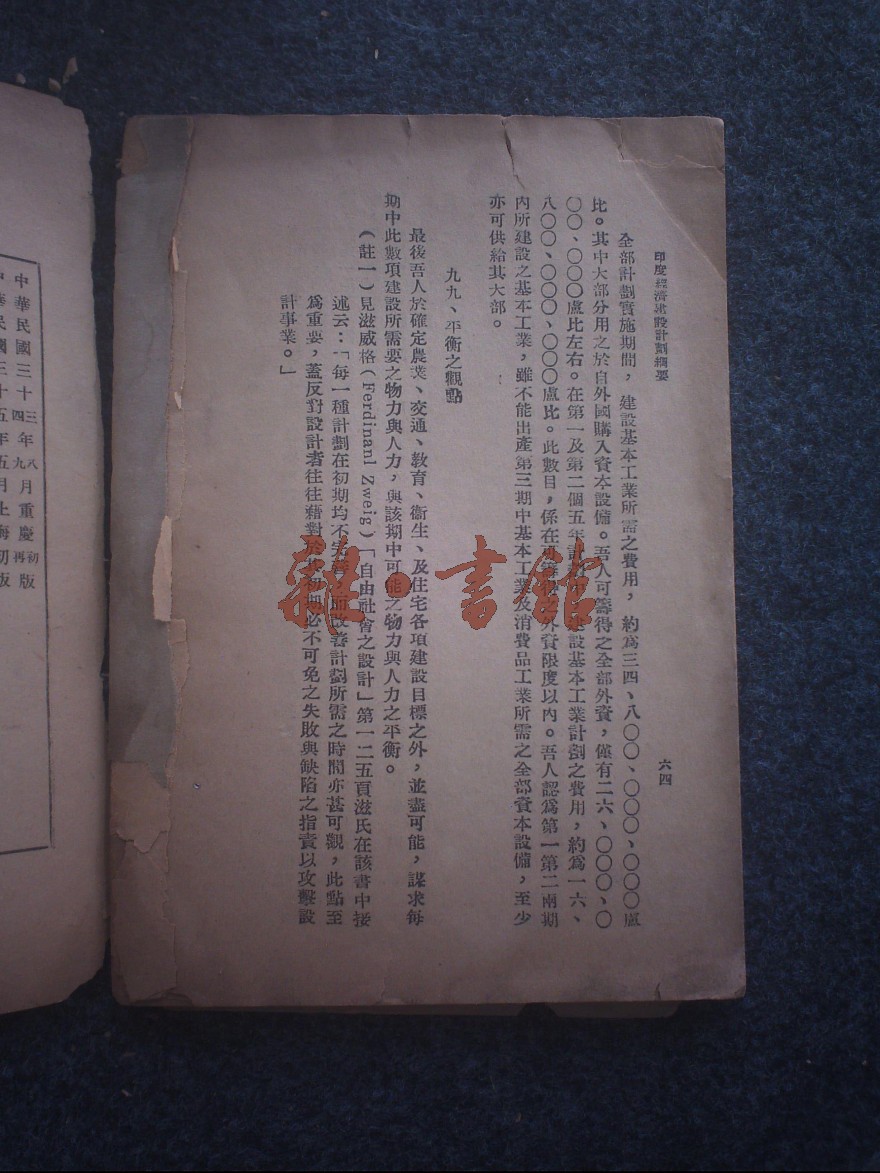 印度經濟建設計劃綱要
六四
全部計劃實施期間,建設基本工業所需之費用,約為三四、八〇〇、〇〇〇、〇〇〇盧
比。其中大部分用之於自外國購入資本設備。吾人可籌得之全部外資,僅有二六、〇〇〇、〇
〇〇、〇〇〇盧比左右。在第一及第二個五年計 建設基本工業計劃之費用,約為一六、
八〇〇、〇〇〇、〇〇〇盧比。此數目,係在 外資限度以內。吾人認為第一第二兩期
內所建設之基本工業,雖不能出產第三期中基本工業及消費品工業所需之全部資本設備,至少
亦可供給其大部。
九九、平衡之觀點
最後吾人於確定農業、交通、教育、衞生、及住宅各項建設目標之外,並盡可能,謀求每
期中此數項建設所需要之物力與人力,與該期中可能之物力與人力之平衡。
(註一)見滋威格(Ferdinanl Zweig)「自由社會之設計」第一二五頁滋氏在該書中接
述云:「每一種計劃在初期均不完 ,而改善計劃所需之時間亦甚可觀,此點至
為重要,蓋反對設計者往往藉對於 初期必不可免之失敗與缺陷之指責以攻擊設
計事業。」
中華民國三十三年八月重慶初版
四 九 再
中華民國三十五年五月上海初版
雜·書館